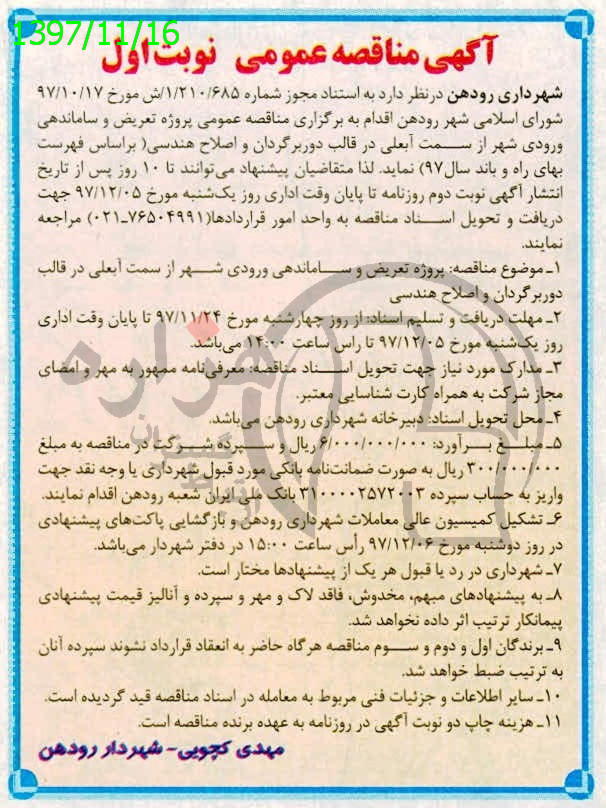 1397/11/16
آگهی مناقصه عمومی نوبت اول
شهرداری رودهن درنظر دارد به استناد مجوز شماره ۱/۲۱۰/۶۸۵/ش مورخ ۹۷/۱۰/۱۷
شورای اسلامی شهر رودهن اقدام به برگزاری مناقصه عمومی پروژه تعریض و ساماندهی
ورودی شهر از سمت آبعلی در قالب دوربرگردان و اصلاح هندسی( براساس فهرست
بهای راه و باند سال۹۷) نماید. لذا متقاضیان پیشنهاد می‌توانند تا ۱۰ روز پس از تاریخ
انتشار آگهی نوبت دوم روزنامه تا پایان وقت اداری روز یک‌شنبه مورخ ۹۷/۱۲/۰۵ جهت
دریافت و تحویل اسناد مناقصه به واحد امور قراردادها(۷۶۵۰۴۹۹۱-۰۲۱) مراجعه
نمایند.
۱ـ موضوع مناقصه: پروژه تعریض و ساماندهی ورودی شهر از سمت آبعلی در قالب
دوربرگردان و اصلاح هندسی
۲ـ مهلت دریافت و تسلیم اسناد: از روز چهارشنبه مورخ ۹۷/۱۱/۲۴ تا پایان وقت اداری
روز یک‌شنبه مورخ ۹۷/۱۲/۰۵ تا راس ساعت ۱۴:۰۰ می‌باشد.
۳ـ مدارک مورد نیاز جهت تحویل اسناد مناقصه: معرفی‌نامه ممهور به مهر و امضای
مجاز شرکت به همراه کارت شناسایی معتبر.
۴ـ محل تحویل اسناد: دبیرخانه شهرداری رودهن می‌باشد.
۵ـ مبلغ برآورد: ۶/۰۰۰/۰۰۰/۰۰۰ ریال و سپرده شرکت در مناقصه به مبلغ
۳۰۰/۰۰۰/۰۰۰ ریال به صورت ضمانت‌نامه بانکی مورد قبول شهرداری یا وجه نقد جهت
واریز به حساب سپرده ۳۱۰۰۰۰۲۵۷۲۰۰۳ بانک ملی ایران شعبه رودهن اقدام نمایند.
۶ـ تشکیل کمیسیون عالی معاملات شهرداری رودهن و بازگشایی پاکت‌های پیشنهادی
در روز دوشنبه مورخ ۹۷/۱۲/۰۶ رأس ساعت ۱۵:۰۰ در دفتر شهردار می‌باشد.
۷ـ شهرداری در رد یا قبول هر یک از پیشنهادها مختار است.
۸ـ به پیشنهادهای مبهم، مخدوش، فاقد لاک و مهر و سپرده و آنالیز قیمت پیشنهادی
پیمانکار ترتیب اثر داده نخواهد شد.
۹ـ برندگان اول و دوم و سوم مناقصه هرگاه حاضر به انعقاد قرارداد نشوند سپرده آنان
به ترتیب ضبط خواهد شد.
۱۰ـ سایر اطلاعات و جزئیات فنی مربوط به معامله در اسناد مناقصه قید گردیده است.
۱۱ـ هزینه چاپ دو نوبت آگهی در روزنامه به عهده برنده مناقصه است.
مهدی کچویی- شهردار رودهن
هزاره